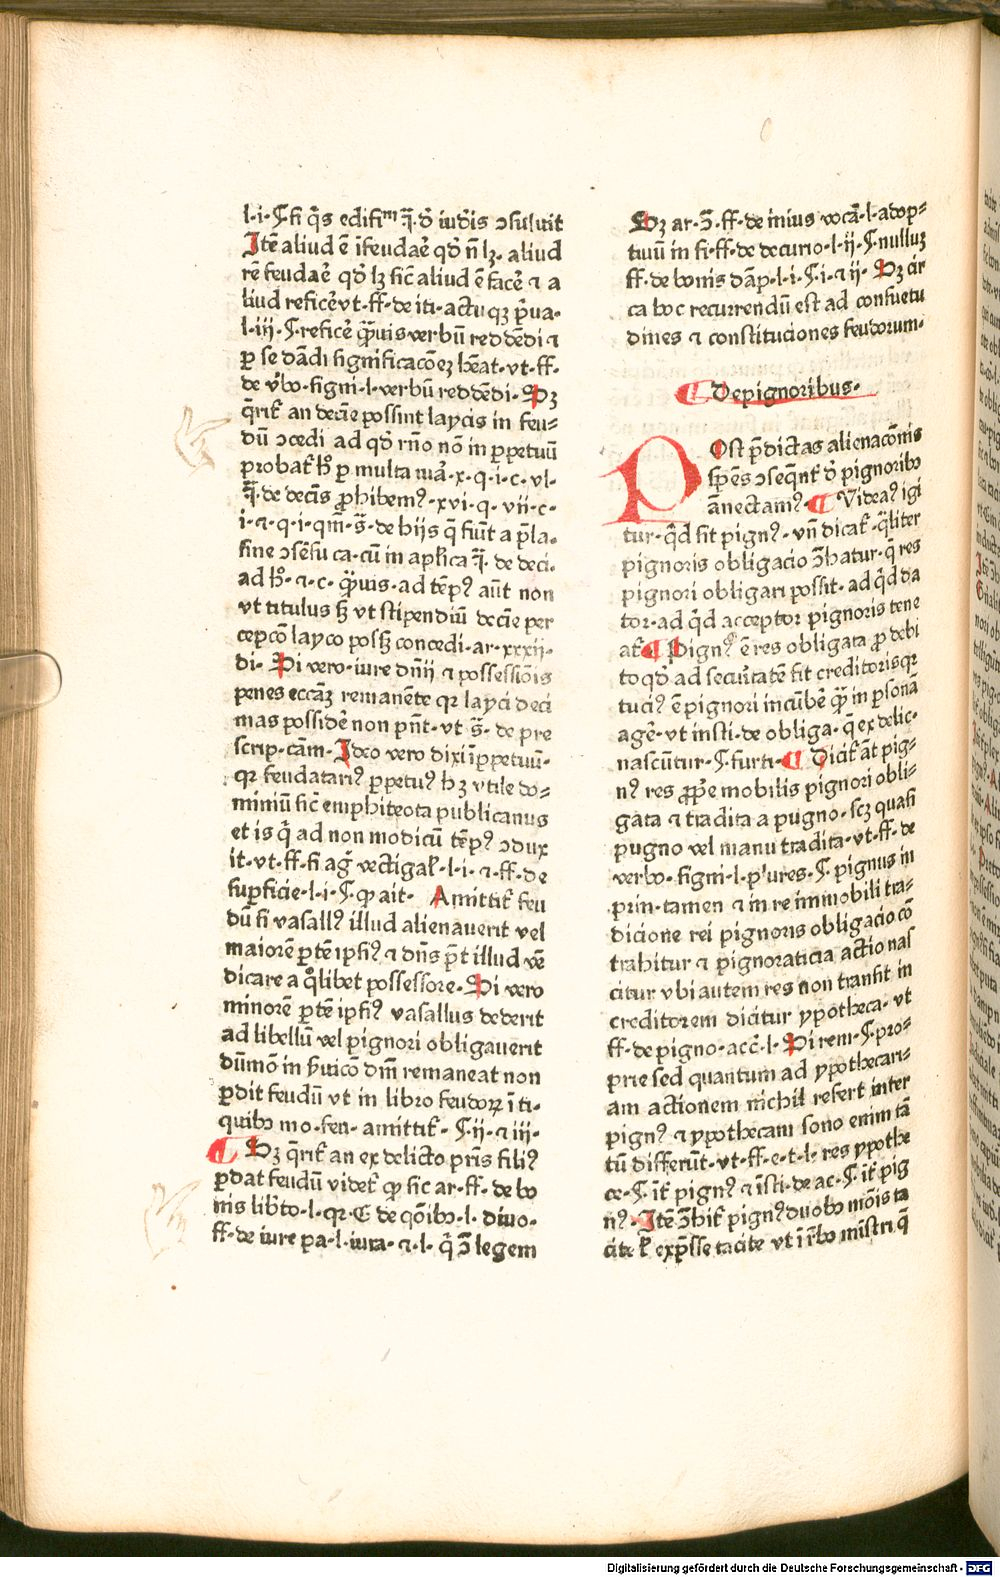 l·i·¶ si q̄s edifiᵐ q̄·d̄ iud̄is ɔsuluit
Itē aliud ē īfeudaē qd̄ n̄ lꝫ· aliud
rē feudaē qd̄ lꝫ sic̄ aliud ē facē ⁊ a
liud reficē vt·ff·de iti·actu qꝫ p̄ua·
l·iij·¶·reficē q̄ꝑuis verbū reddēdi ⁊
ꝑ se dādi significacōeꝫ hēat·vt·ff·
de v̄bo·signi·l·verbū reddēdi· Sꝫ
q̄rit᷑ an decīe possint laycis in feu⸗
dū ɔcedi ad qd̄ rn̄o nō in ꝑpetuū
probat᷑ h̄ ꝑ multa iura·x·q·i·c·vl·
q̄·de decīs ꝓhibemꝰ·xvi·q·vii·c·
i·⁊·q·i·qm̄·s̄·de hijs q̄ fiūt a p̄la·
sine ɔsēsu ca·cū in aplica q̄·de deci·
ad h̄·⁊·c· q̄ꝑuis·ad tēpꝰ aūt non
vt titulus sꝫ vt stipendiū decīe per
cepcō layco possꝫ concedi·ar·xxxij·
di· Si vero·iure dn̄ij ⁊ possessiōis
penes eccāꝫ remanēte qr layci deci
mas possidē non pn̄t·vt·s̄·de pre
scrip·cām· Ideo vero dixi ī ꝑpetuū·
qr feudatariꝰ ꝑpetuꝰ hꝫ vtile do⸗
miniū sic̄ emphiteota publicanus
et is q̄ ad non modicū tēpꝰ ɔdux
it·vt·ff·si aḡ vectigal·l·i·⁊·ff·de
suꝑficie·l·i·¶·ꝙ ait· Amittit᷑ feu
dū si vasallꝰ illud alienauerit vel
maiorē ꝑtē ipsiꝰ ⁊ dn̄s p̄t illud vē
dicare a qͦlibet possessore· Si vero
minorē ꝑtē ipsiꝰ vasallus dederit
ad libellū vel pignori obligauerit
dūmō in s̄uicō dn̄i remaneat non
ꝑdit feudū vt in libro feudoꝝ ī ti·
quibꝰ mo·feu·amittit᷑·¶·ij·⁊ iij·
¶ Sꝫ q̄rit᷑ an ex delicto pr̄is filiꝰ
ꝑdat feudū videt᷑ ꝙ sic ar·ff·de bo
nis lib̄to·l·qr·C de qōibꝰ·l· diuo·
ff·de iure pa·l·iura·⁊·l· q̄ ɔ̄ legem
Sꝫ ar·ɔ̄·ff·de īnius vocā·l·adop⸗
tiuū in fi·ff·de decurio·l·ij·¶ nulluꝫ
ff·de bonis dāp·l·i·¶·i·⁊ ij· Sꝫ cir
ca hoc recurrendū est ad consuetu
dines ⁊ constituciones feudorum·
¶ De pignoribus·
POst p̄dictas alienacōnis
sp̄es ɔseq̄nt᷑ d̄ pignoribꝰ
ānectamꝰ· ¶ Videaꝰ igi
tur·qd̄ sit pignꝰ·vn̄ dicat᷑·q̄liter
pignoris obligacio ɔ̄hatur·q̄ res
pignori obligari possit·ad qd̄ da
tor·ad qd̄ acceptor pignoris tene
at᷑ ¶ Pignꝰ ē res obligata ꝓ debi
to qd̄ ad secūtatē fit creditoris qr
tuciꝰ ē pignori incūbē q̄ꝫ in ꝑsonā
agē·vt insti·de obliga·q̄ ex delic·
nascūtur·¶·furti· ¶ Dicit᷑ āt pig⸗
nꝰ res ꝓpͤ mobilis pignori obli⸗
gata ⁊ tradita a pugno·scꝫ quasi
pugno vel manu tradita·vt·ff·de
verbo·signi·l·pl'ures·¶·pignus in
prin·tamen ⁊ in re immobili tra⸗
dicione rei pignoris obligacio cō
trahitur ⁊ pignoraticia actio nas
citur vbi autem res non transit in
creditorem dicitur ypotheca·vt
ff·de pigno·acc̄·l· Si rem·¶·pro⸗
prie sed quantum ad ypothecari⸗
am actionem nichil refert inter
pignꝰ ⁊ ypothecam sono enim tā
tū differūt·vt·ff·e·t·l· res ypothe
ce·¶·it᷑ pignꝰ ⁊ īsti·de ac·¶ it᷑ pig
nꝰ· Itē ɔ̄hit᷑ pignꝰ duobꝰ mōis ta
cite ł exp̄sse tacite vt ī ir̄bo mīstri q̄
Digitalisierung gefördert durch die Deutsche Forschungsgemeinschaft - DFG